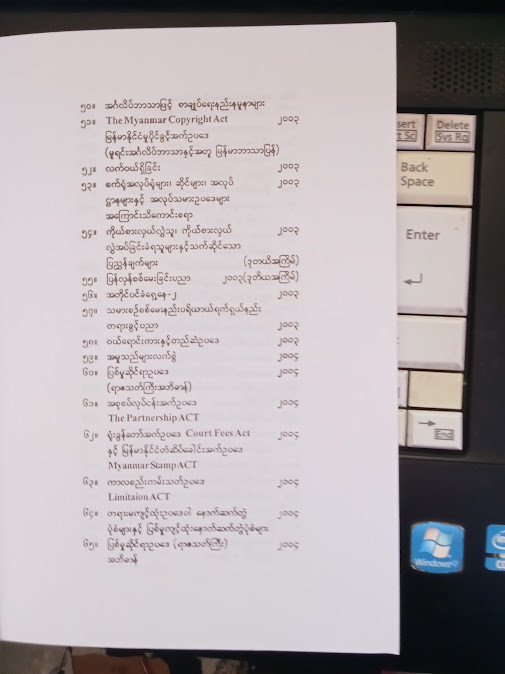 ၅၀။ အင်္ဂလိပ်ဘာသာဖြင့် စာချုပ်ရေးနည်းနမူနာများ
၅၁။ The Myanmar Copyright Act ၂၀၀၃
မြန်မာနိုင်ငံမူပိုင်ခွင့်အက်ဥပဒေ
(မူရင်းအင်္ဂလိပ်ဘာသာနှင့်အတူ မြန်မာဘာသာပြန်)
၅၂။ လက်ဝယ်ရှိခြင်း ၂၀၀၃
၅၃။ စက်ရုံအလုပ်ရုံများ၊ ဆိုင်များ၊ အလုပ် ၂၀၀၃
ဌာနများနှင့် အလုပ်သမားဥပဒေများ
အကြောင်းသိကောင်းစရာ
၅၄။ ကိုယ်စားလှယ်လွှဲသူ၊ ကိုယ်စားလှယ် ၂၀၀၃
လွှဲအပ်ခြင်းခံရသူများနှင့်သက်ဆိုင်သော
ပြဋ္ဌာန်းချက်များ (ဒုတိယအကြိမ်)
၅၅။ ပြန်လှန်စစ်မေးခြင်းပညာ ၂၀၀၃(ဒုတိယအကြိမ်)
၅၆။ အတိုင်ပင်ခံရှေ့နေ-၂ ၂၀၀၃
၅၇။ သမားစဉ်စစ်မေးနည်းပရိယာယ်ရက်ရှယ်နည်း
တရားခွင်ပညာ ၂၀၀၃
၅၈။ ဝယ်ရောင်းကားနှင့်တည်ဆဲဥပဒေ ၂၀၀၃
၅၉။ အမှုသည်များလက်စွဲ ၂၀၀၄
၆၀။ ပြစ်မှုဆိုင်ရာဥပဒေ ၂၀၀၄
(ရာဇသတ်ကြီးအဘိဓာန်)
၆၁။ အစုစပ်လုပ်ငန်းအက်ဥပဒေ ၂၀၀၄
The Partnership ACT
၆၂။ ရုံးခွန်တော်အက်ဥပဒေ Court Fees Act ၂၀၀၄
နှင့် မြန်မာနိုင်ငံတံဆိပ်ခေါင်းအက်ဥပဒေ
Myanmar Stamp ACT
၆၃။ ကာလစည်းကမ်းသတ်ဥပဒေ ၂၀၀၄
Limitaion ACT
၆၄။ တရားမကျင့်ထုံးဥပဒေပါ နောက်ဆက်တွဲ ၂၀၀၄
ပုံစံများနှင့် ပြစ်မှုကျင့်ထုံးနောက်ဆက်တွဲပုံစံများ
၆၅။ ပြစ်မှုဆိုင်ရာဥပဒေ (ရာဇသတ်ကြီး) ၂၀၀၄
အဘိဓာန်
Delete
Sys Rq
Back
Space
Enter
End
Windows 7